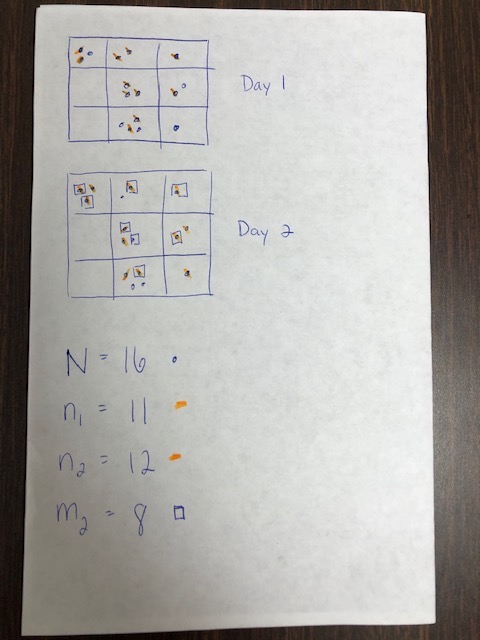 Day 1
Day 2
N = 16
n1 = 11
n2 = 12
m2 = 8